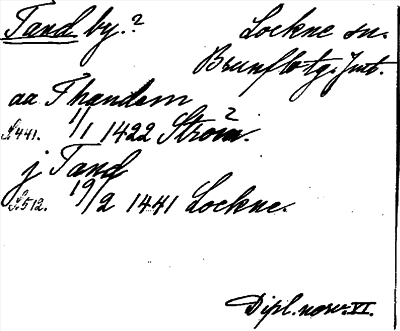 Tand by.? Lockne sn.
Brunflo tg. Jmt.
aa Thandem
S. 441. 1/1 1422 Ström?.
j Tand
S. 512. 19/2 1441 Lockne.
Dipl. norv. VI.